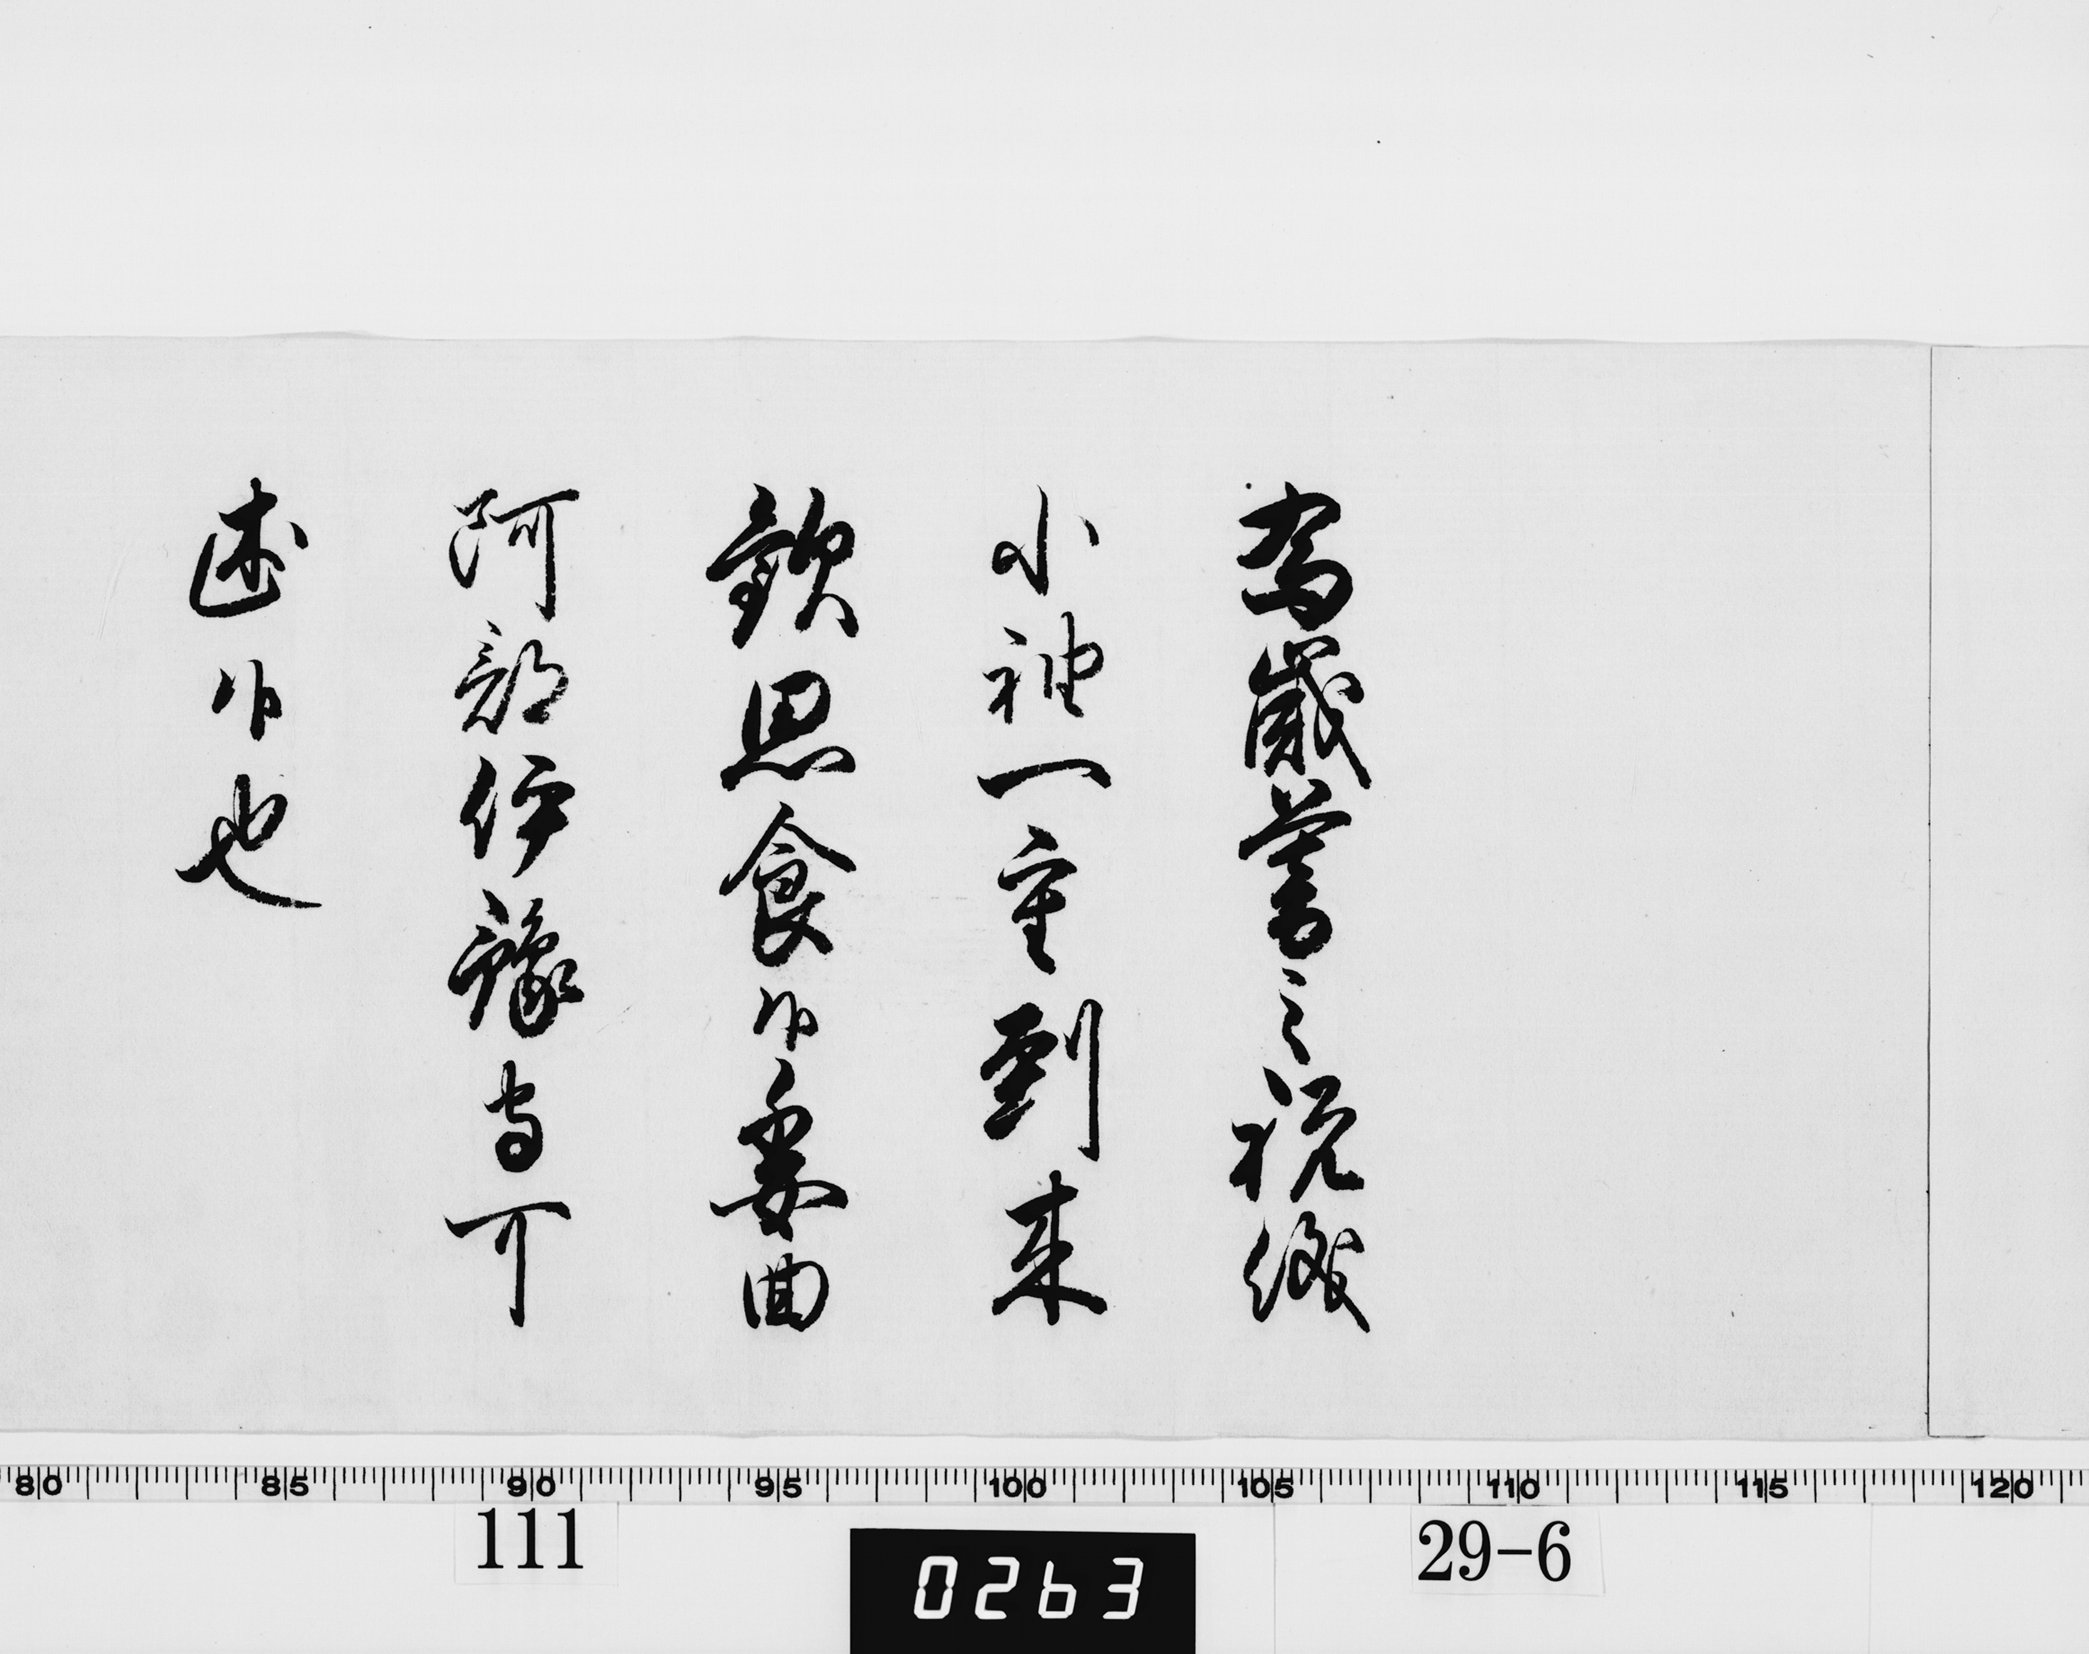 為歳暮之祝儀
小袖一重到来
歓思食候委曲
阿部伊豫守可
述候也
80 85 90 95 100 105 110 115 120
111
0263
29-6